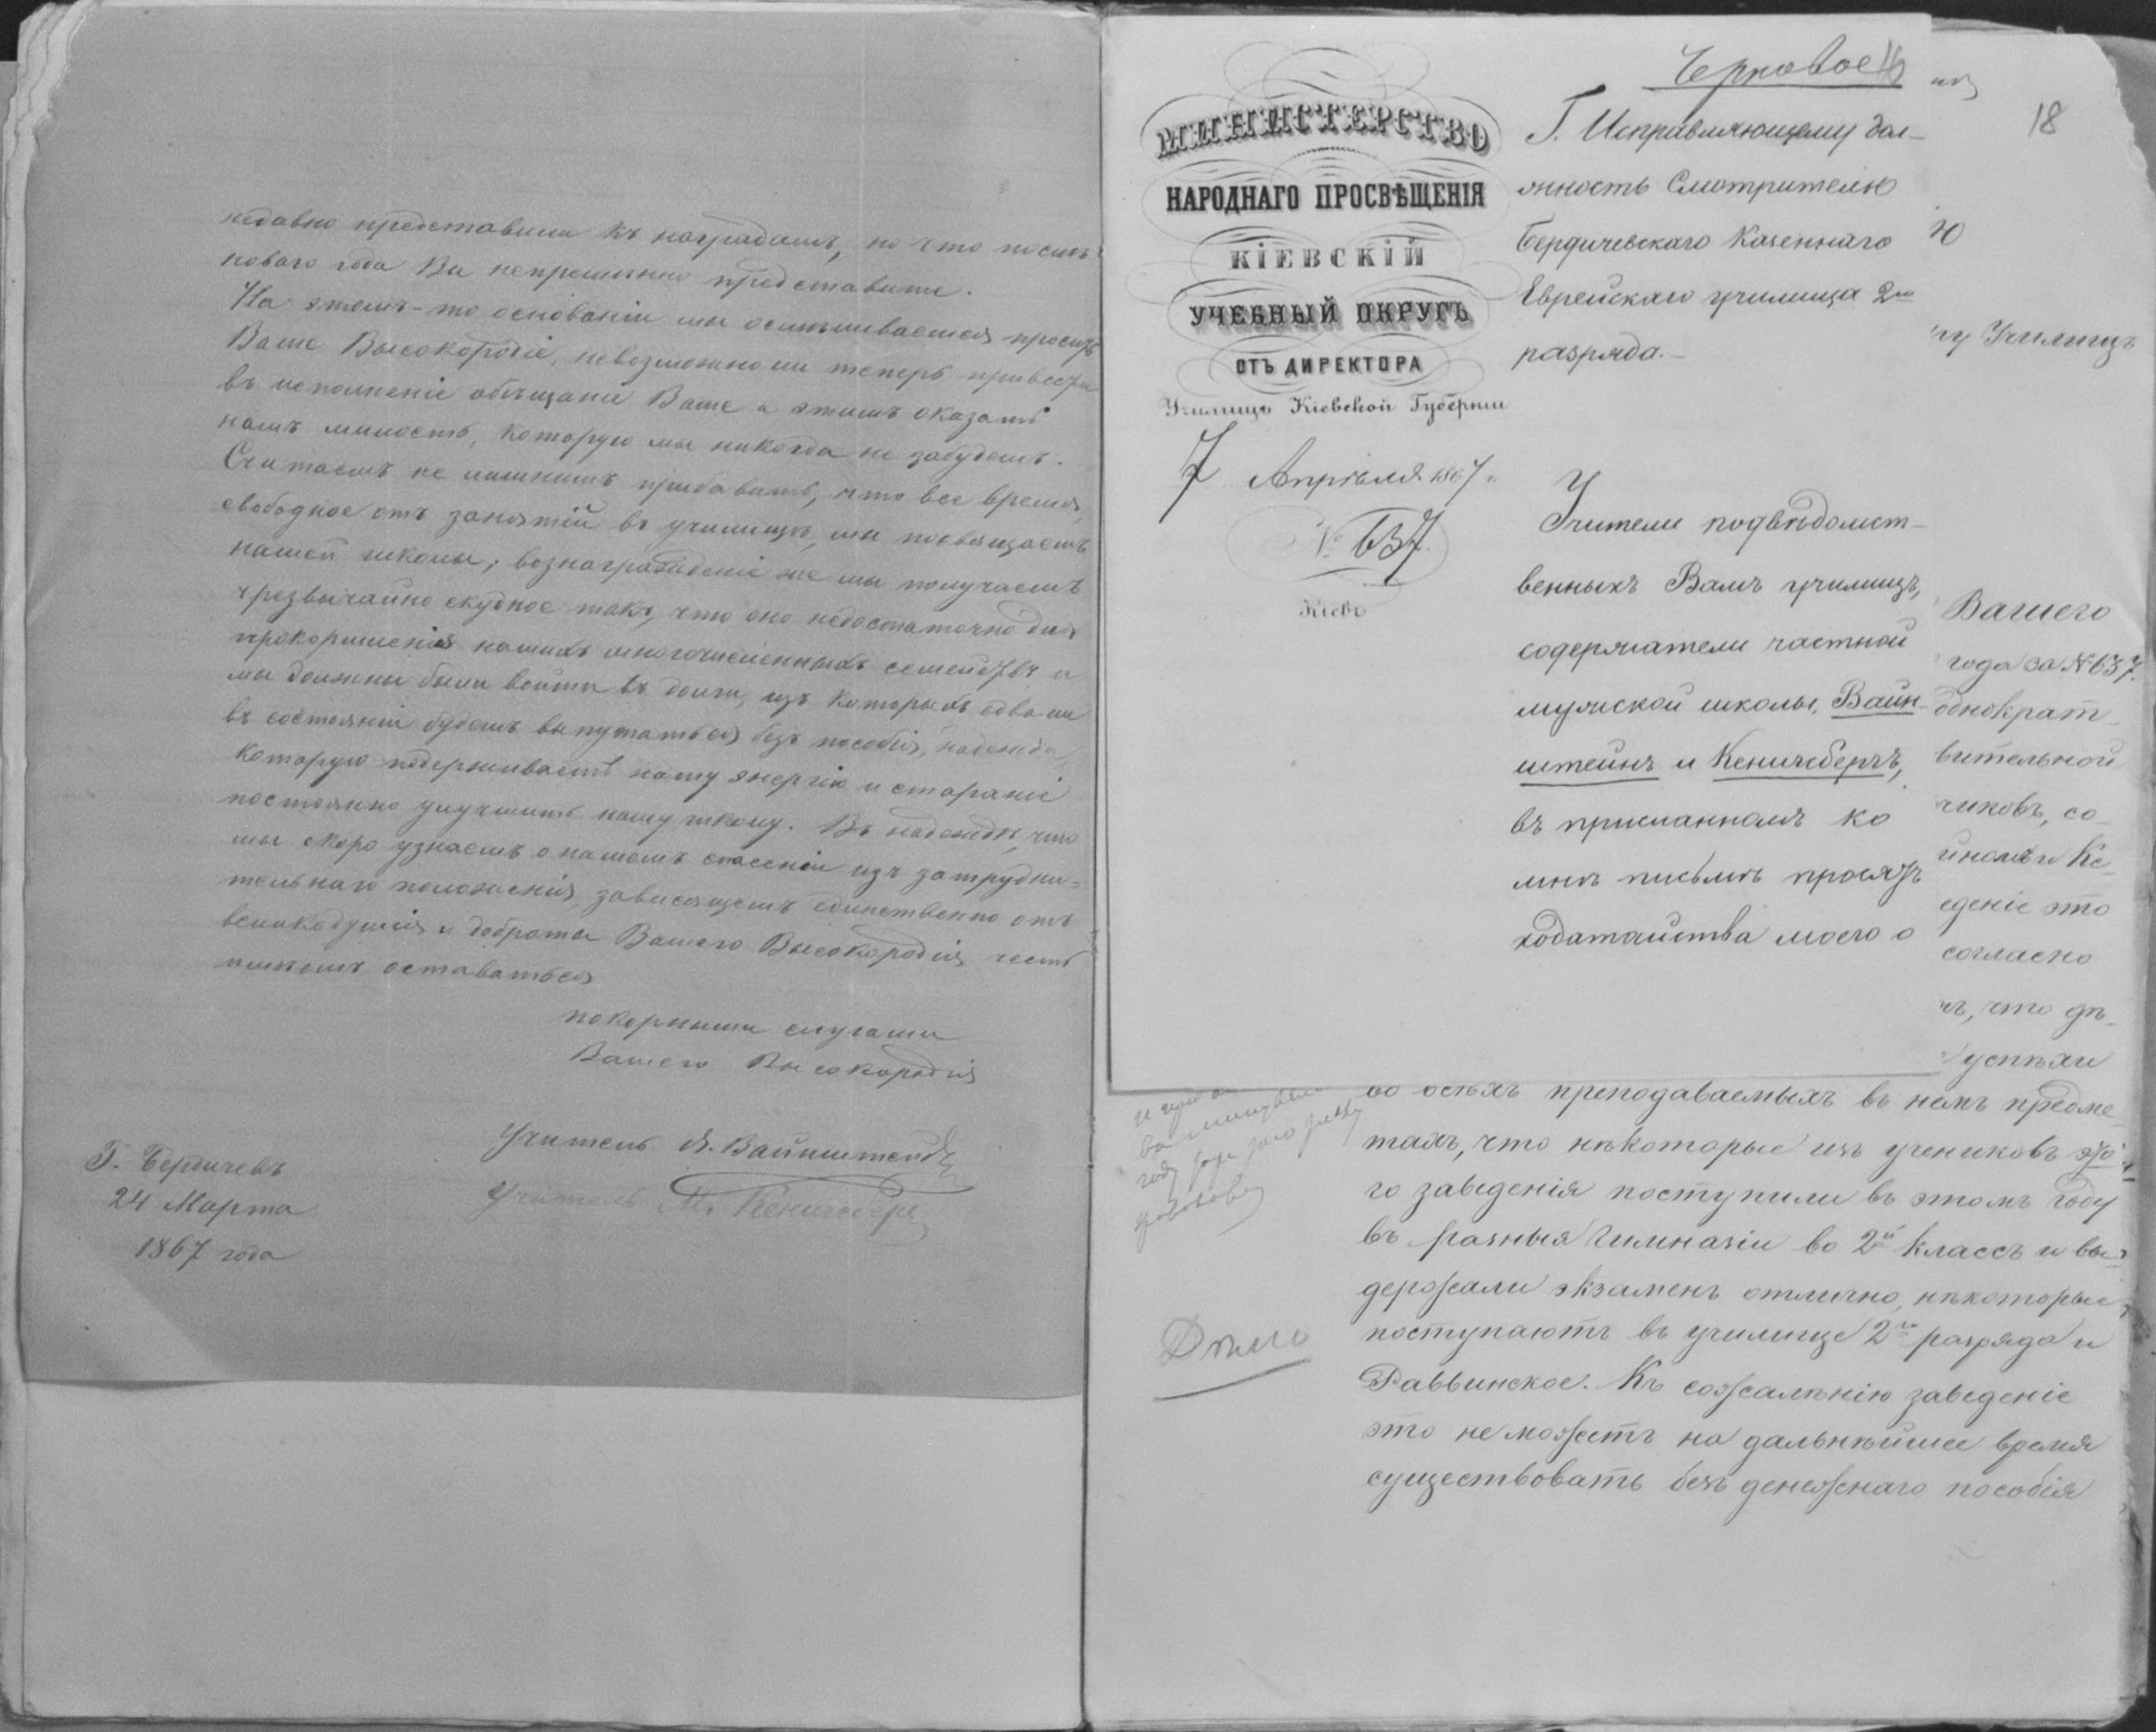 недавно представили къ наградамъ, но что послѣ
новаго года Вы непремѣнно представите.
На этомъ-то основаніи мы осмѣливаемся просить
Ваше Высокородіе, невозможно ли теперь привести
въ исполненіе обѣщаніе Ваше и этимъ оказать
намъ милость, которую мы никогда не забудемъ.
Считаемъ не лишнимъ прибавить, что все время,
свободное отъ занятій въ училищѣ, мы посвящаемъ
нашей школы; вознагражденіе же мы получаемъ
чрезвычайно скудное такъ, что оно недостаточно для
прокормленія нашихъ многочисленныхъ семействъ и
мы должны были войти въ долги, изъ которыхъ едва ли
въ состояніи будемъ выпутаться безъ пособія, надежда
которую подерживаетъ нашу энергію и стараніе
постоянно улучшить нашу школу. Въ надеждѣ, что
мы скоро узнаемъ о нашемъ спасеніи изъ затрудни=
тельнаго положенія, зависящемъ единственно отъ
великодушія и доброты Вашего Высокородія честь
имѣемъ оставаться
покорными слугами
Вашего Высокородія
Учитель Я. Вайнштейнъ
Учитель М. Кенигсбергъ
Г. Бердичевъ
24 Марта
1867 года
Черновое
18
МИНИСТЕРСТВО
НАРОДНАГО ПРОСВѢЩЕНІЯ
КІЕВСКІЙ
УЧЕБНЫЙ ОКРУГЪ
ОТЪ ДИРЕКТОРА
Училищъ Кіевской Губерніи
7 Апрѣля 1867 г.
№ 637
Кіевъ
Г. Исправляющему дол-
жность Смотрителя
Бердичевскаго Казеннаго
Еврейскаго училища 2го
разряда.-
Учители подвѣдомст-
венныхъ Вамъ училищъ,
содержатели частной
мужской школы, Вайн-
штейнъ и Кенигсбергъ,
въ присланномъ ко
мнѣ письмѣ просятъ
ходатайства моего о
ю
у Училищъ
Вашего
года за № 637.
однократ-
вительной
чиковъ, со-
йномъ и Ке-
еденіе это
согласно
ъ, что дѣ-
успѣхи
во всѣхъ преподаваемыхъ въ немъ предме-
тахъ, что нѣкоторые изъ учениковъ это-
го заведенія поступили въ этомъ году
въ разныя Гимназіи во 2й классъ и вы-
держали экзаменъ отлично, нѣкоторые
поступаютъ въ училище 2го разряда и
Раввинское. Къ сожалѣнію заведеніе
это не можетъ на дальнѣйшее время
существовать безъ денежнаго пособія
Дѣло